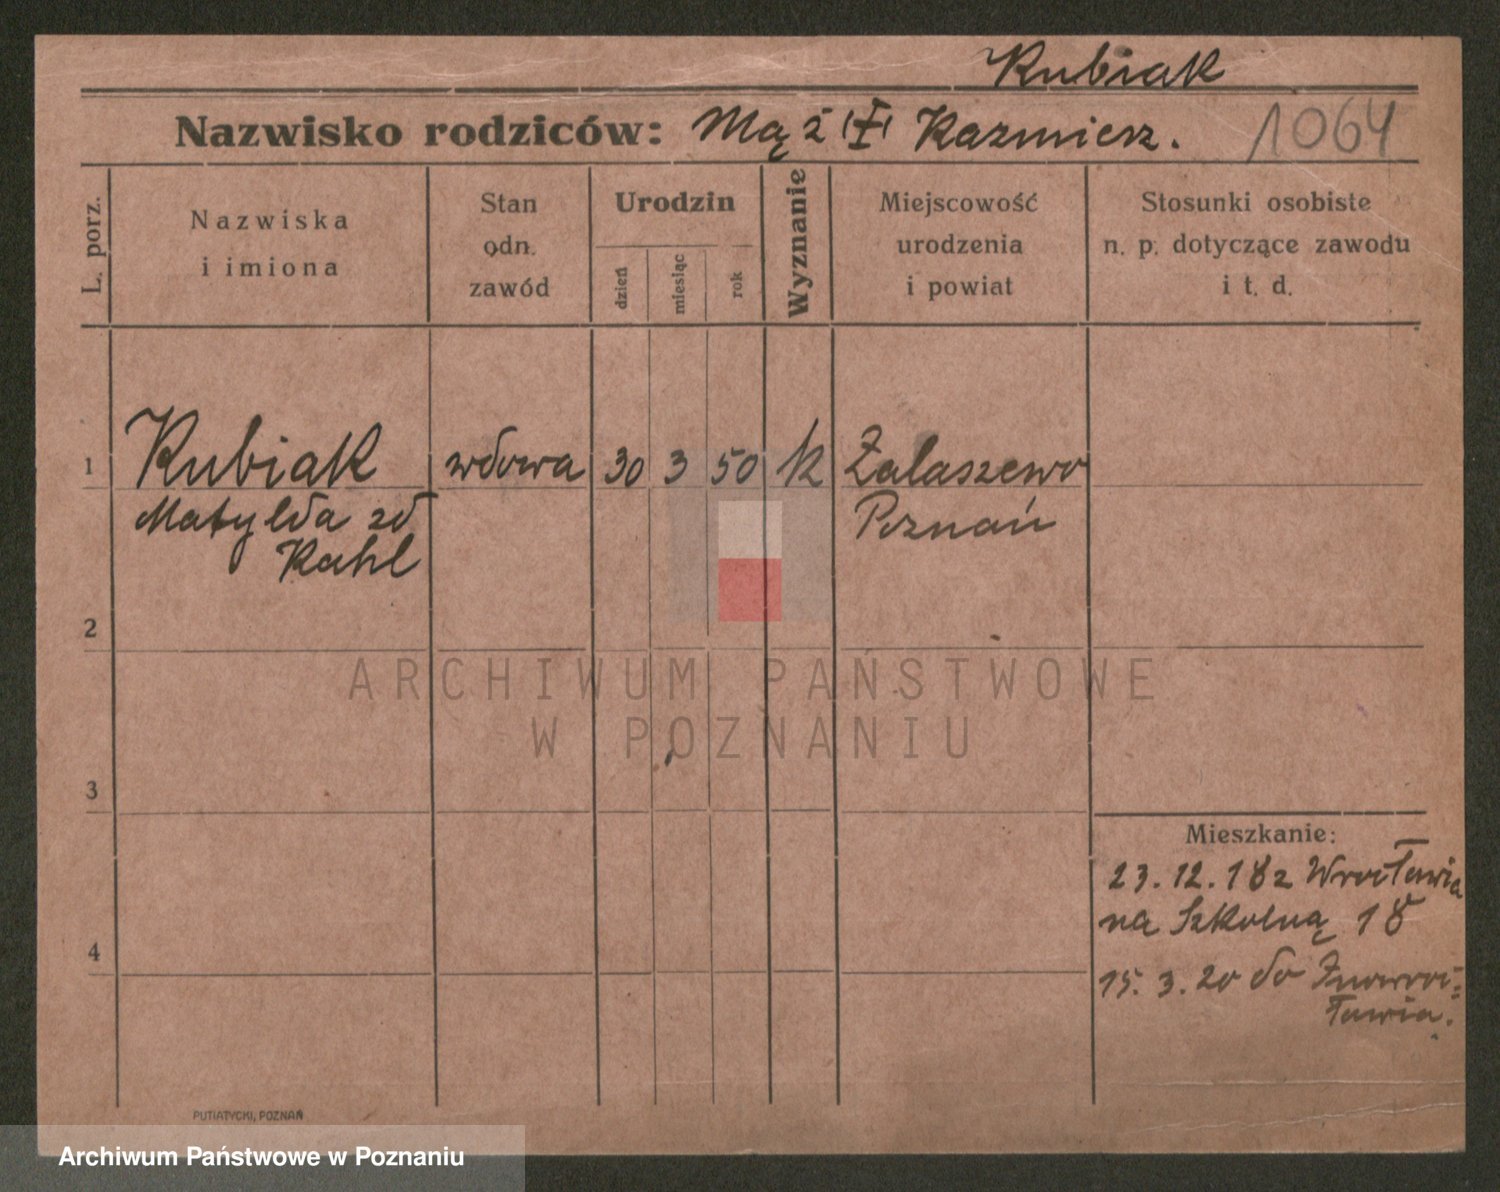 Kubiak
Nazwisko rodziców: Mąż (†) Kazmierz.
1064
L. porz.
Nazwiska
i imiona
Stan
odn.
zawód
Urodzin
dzień
miesiąc
rok
Wyznanie
Miejscowość
urodzenia
i powiat
Stosunki osobiste
n. p. dotyczące zawodu
i t. d.
1
Kubiak wdowa 30 3 50 k Zalaszewo
Matylda zd Poznań
Kahl
2
ARCHIWUM PAŃSTWOWE
W POZNANIU
3
Mieszkanie:
23.12.18 z Wrocławia
na Szkolną 18
4
15.3.20 do Inowroc=
ławia.
PUTIATYCKI, POZNAŃ
Archiwum Państwowe w Poznaniu